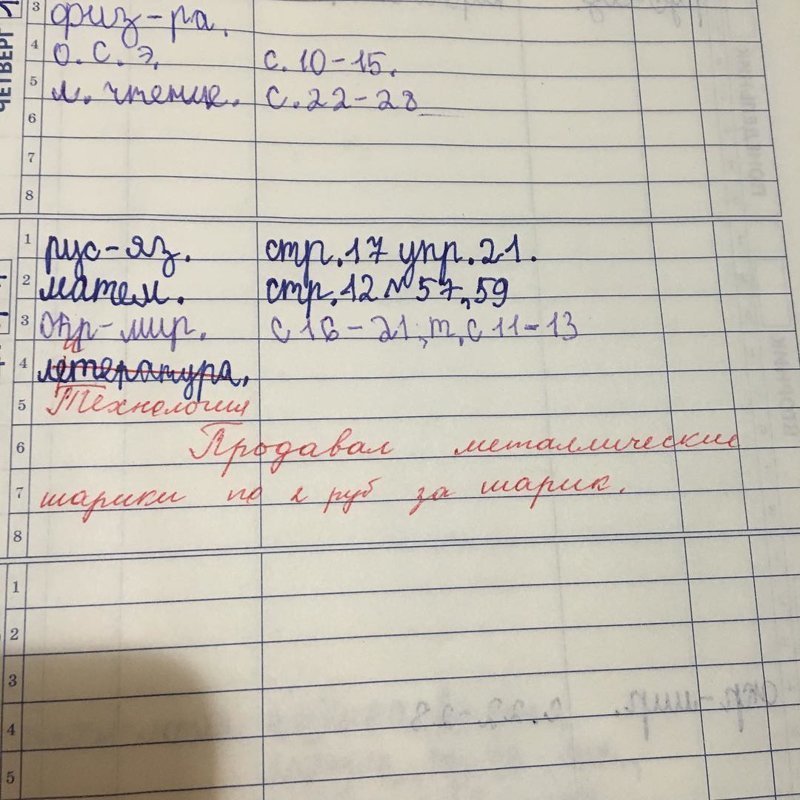 ЧЕТВЕРГ
3 физ-ра.
4 о.с.э. с.10-15.
5 л. чтение. с.22-28
6
7
8
1 рус-яз. стр.17 упр.21.
2 матем. стр.12 № 57,59
3 окр-мир. с 16-21, т, с 11-13
4 летература.
и
5 Технология
6 Продавал металлические
7 шарики по 2 руб за шарик.
8
1
2
3
4
5